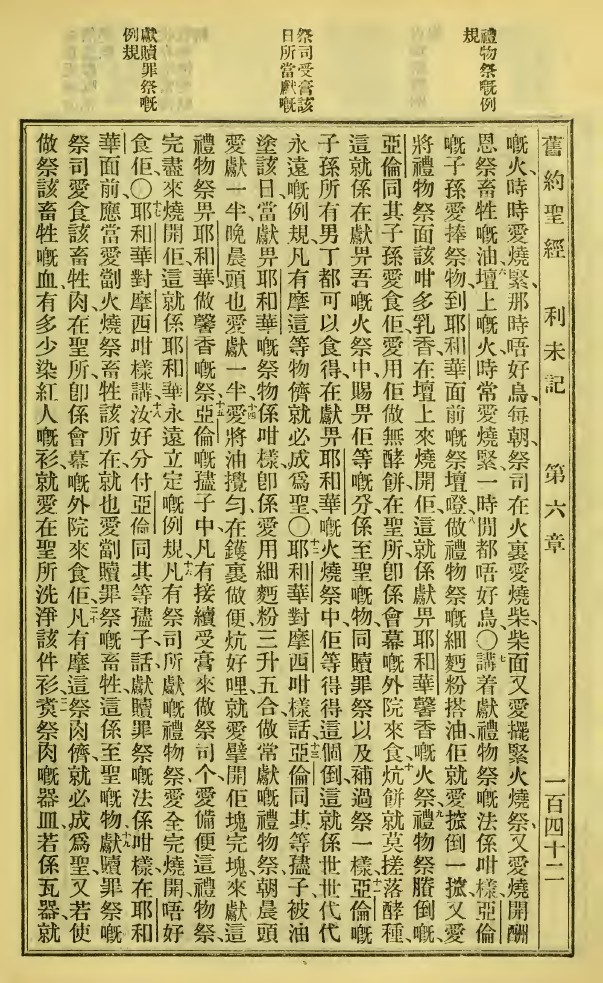 禮物祭嘅例
規
祭司受膏該
日所當獻嘅
獻贖罪祭嘅
例規
舊約聖經 利未記 第六章 一百四十二
嘅火、時時愛燒緊、那時唔好烏、每朝祭司在火裏愛燒柴、柴面又愛擺緊火燒祭、又愛燒開酬
恩祭畜牲嘅油、六壇上嘅火時常愛燒緊、一時間都唔好烏、〇七講着獻禮物祭嘅法係咁樣、亞倫
嘅子孫愛捧祭物、到耶和華面前嘅祭壇嶝、八做禮物祭嘅細麪粉搭油、佢就愛㨆倒一㨆、又愛
將禮物祭面該咁多乳香、在壇上來燒開佢、這就係獻畀耶和華馨香嘅火祭、九禮物祭賸倒嘅、
亞倫同其子孫愛食佢、愛用佢做無酵餅、在聖所卽係會幕嘅外院來食、十炕餅就莫搓落酵種、
這就係在獻畀吾嘅火祭中、賜畀佢等嘅分、係至聖嘅物、同贖罪祭以及補過祭一樣、十一亞倫嘅
子孫所有男丁、都可以食得、在獻畀耶和華嘅火燒祭中、佢等得得這個倒、這就係世世代代
永遠嘅例規、凡有摩這等物儕、就必成爲聖、〇十二耶和華對摩西咁樣話、十三亞倫同其等孻子、被油
塗該日、當獻畀耶和華嘅祭物、係咁樣、卽係愛用細麪粉三升五合、做常獻嘅禮物祭、朝晨頭
愛獻一半、晚晨頭也愛獻一半、十四愛將油攪勻、在鑊裏做便、炕好哩就愛擘開佢塊完塊來獻、這
禮物祭畀耶和華、做馨香嘅祭、十五亞倫嘅孻子中、凡有接續受膏來做祭司个、愛備便這禮物祭、
完盡來燒開佢、這就係耶和華永遠立定嘅例規、十六凡有祭司所獻嘅禮物祭、愛全完燒開、唔好
食佢、〇十七耶和華對摩西咁樣講、十八汝好分付亞倫同其等孻子話、獻贖罪祭嘅法係咁樣、在耶和
華面前、應當愛劏火燒祭畜牲該所在、就也愛劏贖罪祭嘅畜牲、這係至聖嘅物、十九獻贖罪祭嘅
祭司、愛食該畜牲肉、在聖所卽係會幕嘅外院來食佢、二十凡有摩這祭肉儕、就必成爲聖、又若使
做祭該畜牲嘅血、有多少染紅人嘅衫、就愛在聖所洗淨該件衫、二一煑祭肉嘅器皿、若係瓦器、就